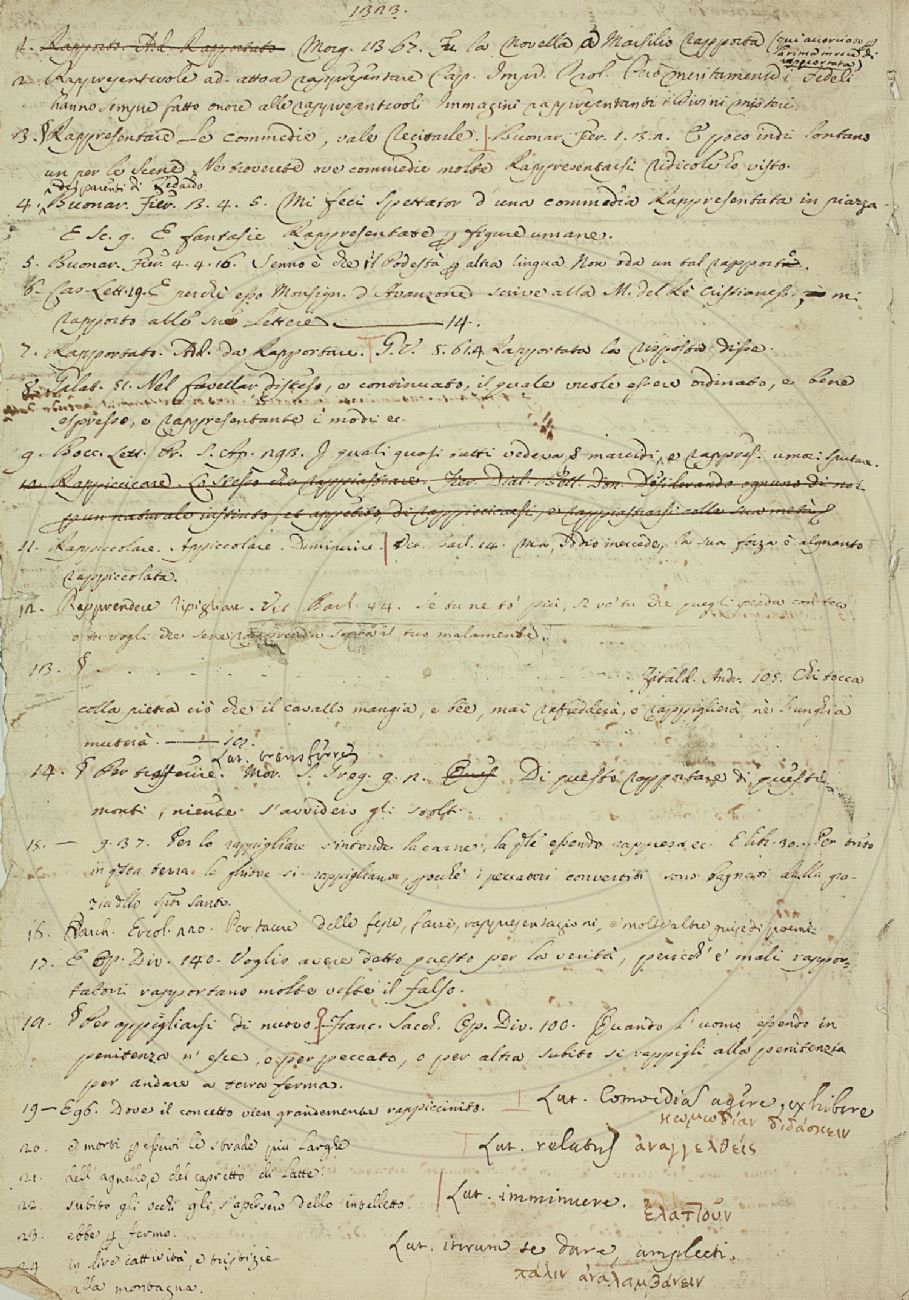 1323.
1. Rapporto. Add. Rapportato Morg. 13 67. Fu la novella a Marsilio rapporta (qui avverian p
la rima in vece di
rapportata)
2. Rappresentevole ad. atto a rappresentare Cap. Impr. Prol. Però meritamente i Fedeli
hanno sempre fatto onore alle rappresentevoli Immagini rappresentanti i divini misterj.
3. § Rappresentare le commedie, vale Recitarle. Buonar. Fier. 1. 3. 2. E poco indi lontano
un per le Scene Ne troverete ove commedie molte Rappresentarsi ridicole ho visto.
4. Buonar. Fier. 3. 4. 5. Mi feci spettator d una commedia Rappresentata in piazza
E Sc. 9. E fantasie Rappresentate p figure umane.
5. Buonar. Fier. 4. 4. 16. Senno è che il Podestà p altra lingua Non oda un tal rapporto.
6. Cas. Lett. 19. E perchè esso Monsign. d'Avanzone scrive alla M. del Re Cristianess., mi
rapporto alle sue Lettere 14.
7. Rapportato. Add. da Rapportare. G. V. 8. 61.4 Rapportata la risposta disse.
8. Galat. 81. Nel favellar disteso, e continuato, il quale vuole essere ordinato, e bene
espresso, e rappresentante i modi ec.
9. Bocc. Lett. Pr. S. Ap. 292. I quali quasi tutti vedeva marcidi, e rappres. umori sputare.
10. Rappiccicare Lo stesso che rappiastrare. Fier. Dial. Bell. Don. Desiderando ognuno di noi
p un naturale instinto, et appetito, di rappiccarsi, e rappiastrarsi colla sua metà
11. Rappiccolare. Appiccolare. Diminuire. Vit. Barl. 14. Ma, Iddio mercede, la sua forza è alquanto
rappiccolata.
12. Rapprendere Ripigliare. Vit. Barl. 44. Se tu ne to' più, si vo' tu che quegli perda con teco
o tu vogli che sene rapprenda sopra il tuo malamente.
13. § . Zibald. Andr. 105. Chi tocca
colla pietra ciò che il cavallo mangia, e bee, mai raffredderà, o rappiglierà, nè l'unghia
muterà.
Lat. transferre
14. § Per trasferire. Mor. S. Greg. 9. 2. Di questo rapportare di questi
monti, niente s'avvidero gli stolti.
15. — 9. 37. Per lo rappigliare s'intende la carne, la qle essendo rappresa, ec. E libr. 30. Per tutto
in qsta terra le piove si rappigliano, perchè i peccatori convertiti sono bagnati dalla gra-
zia dello Spto santo.
16. Varch. Ercol. 220. Per tacere delle feste, farse, rappresentazioni, e molte altre guise di poemi
17. E Op. Div. 140. Voglio avere detto questo per la verità, perocch' e' mali rappor-
tatori rapportano molte volte il falso.
18. § Per appigliarsi di nuovo Franc. Sacch. Op. Div. 100. Quando l'uomo essendo in
penitenza n' esce, o per peccato, o per altra subito si rappigli alla penitenzia
per andare a terra ferma.
19 — E 96. Dove il concetto vien grandemente rappiccinito.
Lat. Comoedias agere, exhibere
κωμωδίαν διδάσκειν
20. e morti p esservi le strade più larghe
Lat. relatus ἀναγγελθείς
21. dell'agnello, e del capretto di latte.
22. subito gli occhi gli s'apersero dello intelletto.
Lat. imminuere. ἐλαττοῦν
23. ebbe p fermo.
Lat. iterum se dare, amplecti.
πάλιν ἀναλαμβάνειν
24. in lire cattività, e tristizie
alla montagna.